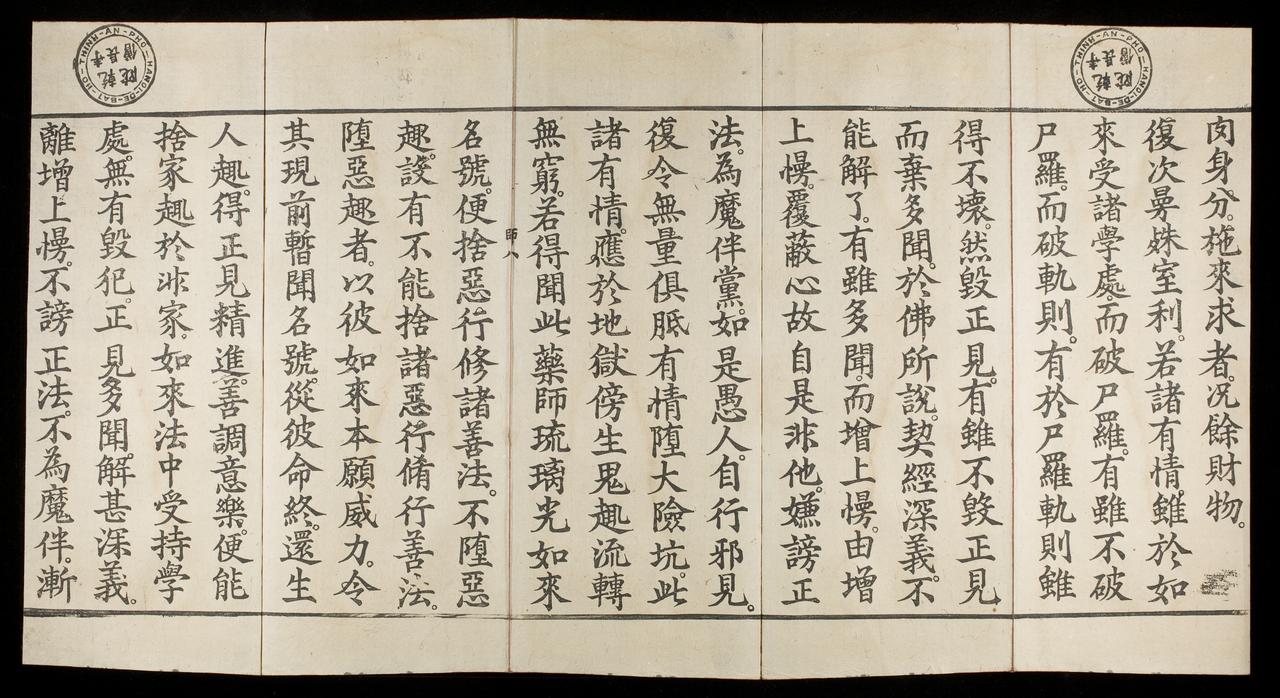 肉身分。施來求者。况餘財物。
復次曼殊室利。若諸有情。雖於如
來受諸學處。而破尸羅。有雖不破
尸羅。而破軌則。有於尸羅軌則雖
得不壞。然毀正見。有雖不毀正見
而棄多聞。於佛所說。契經深義。不
能解了。有雖多聞。而增上慢。由增
上慢。覆蔽心故自是非他。嫌謗正
法。為魔伴黨。如是愚人。自行邪見。
復令無量俱胝有情墮大險坑。此
諸有情。應於地獄傍生鬼趣流轉
無窮。若得聞此藥師琉璃光如來
師八
名號。便捨惡行修諸善法。不墮惡
趣。設有不能捨諸惡行脩行善法。
墮惡趣者。以彼如來本願威力。令
其現前暫聞名號。從彼命終。還生
人趣。得正見精進。善調意樂。便能
捨家趣於非家。如來法中受持學
處。無有毀犯。正見多聞。解甚深義。
離增上慢。不謗正法。不為魔伴。漸
THINH-AN-PHO-HANOI-DE-BAT-HO
THINH-AN-PHO-HANOI-DE-BAT-HO